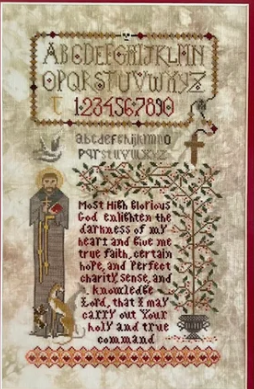 ABCDEFGHIJKLMN
OPQRSTUVWXYZ
1234567890
abcdefghijklmno
pqrstuvwxyz
Most High Glorious
God enlighten the
darkness of my
heart and Give me
true faith, certain
hope, and Perfect
charity, sense, and
knowledge
Lord, that I may
carry out Your
holy and true
command